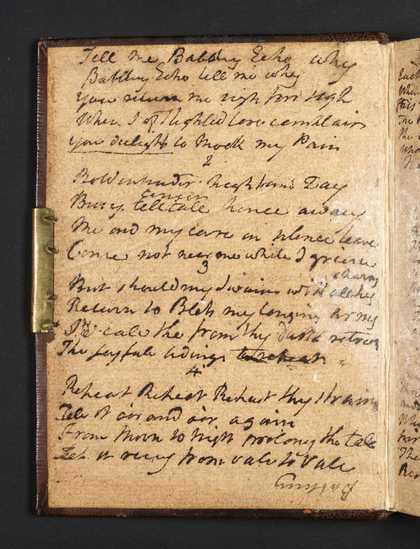 Tell me Babbling Echo why
Babbling Echo tell me why
You return me sigh for sigh
When I of slighted love complain
You delight to Mock my Pain
2
Bold intruder night and Day
Busy telltale hence away
Me and my care in silence leave
Come not near me while I grieve
3
But should my swain with all his
charms
Return to Bless my longing Arms
I'll call the from thy
The joyfull tidings to repeat
4
Repeat Repeat Repeat thy strain
Tell it o'er and o'er again
From Morn to nigh prolong the tale
Let it ring from vale to vale